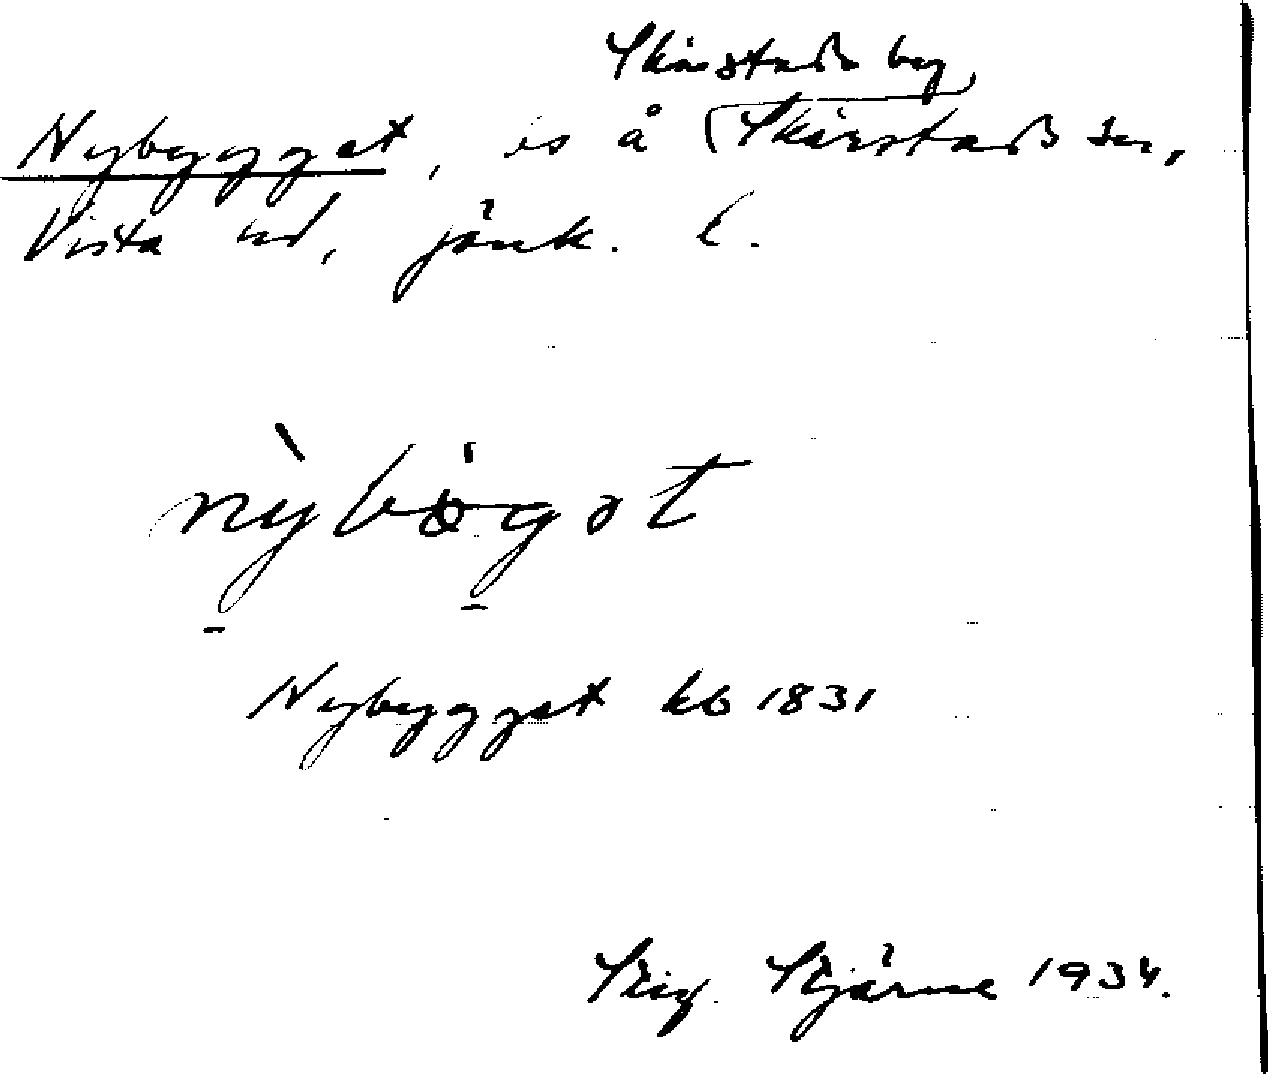 Skärstads by
Nybygget, ls å Skärstads sn,
Vista hd, Jönk. l.
nỳbögət
Nybygget kb 1831
Stig Stjärne 1934.